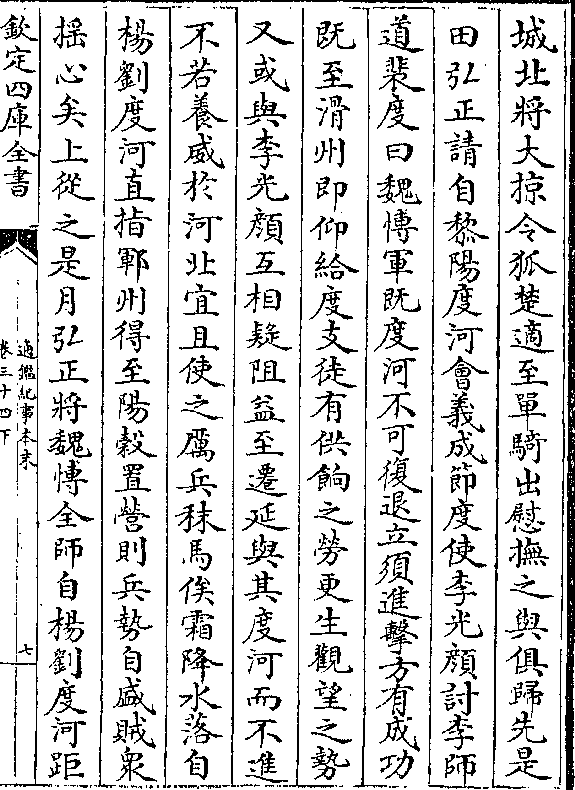 城北將大掠令狐楚適至單騎出慰撫之與俱歸先是
田弘正請自黎陽度河會義成節度使李光顔討李師
道裴度曰魏慱軍既度河不可復退立須進擊方有成功
既至滑州即仰給度支徒有供餉之勞更生觀望之勢
又或與李光顔互相疑阻益至遷延與其度河而不進
不若養威於河北宜且使之厲兵秣馬俟霜降水落自
楊劉度河直指鄆州得至陽穀置營則兵勢自盛賊衆
揺心矣上從之是月弘正將魏慱全師自楊劉度河距
欽定四庫全書
通鑑紀事本末
卷三十四下
七